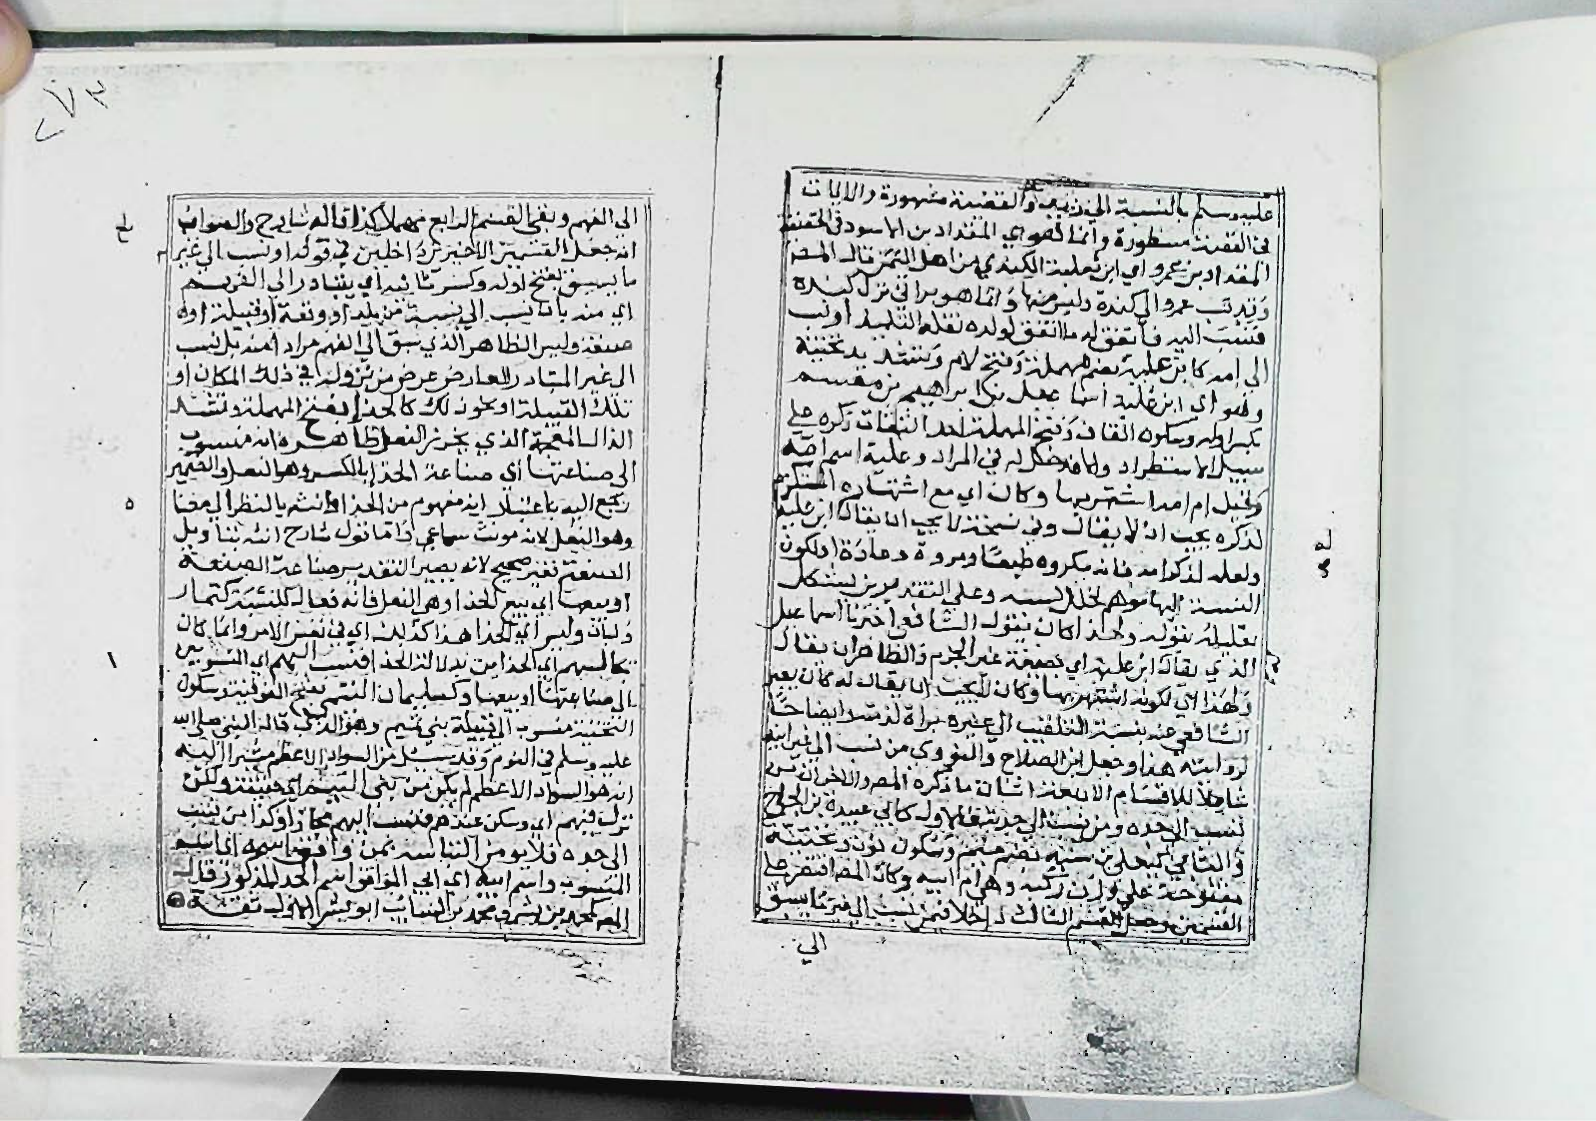 عليه وسلم بالنسبة الى زينب والقضية مشهورة والايات
في القضية مسطورة وانما هو اي المقداد بن الاسود في الحقيقة
المقداد بن عمرو اي ابن ثعلبة الكندي من اهل قال المص
وقد نسب عمرو الى كندة وليس منها وانما هو براني نزل كندة
فنسب اليه فاتفق له ما اتفق لولده نقله التلميذ او نسب
الى امه كابن علية بضم مهملة وفتح لام وتشديد تحتية
وهو اي ابن علية اسماعيل بن ابراهيم بن مقسم
بكسر اوله وسكون القاف وفتح المهملة احد الثقات ذكره على
سبيل الاستطراد والا فلا دخل له في المراد وعلية اسم امه
وقيل ام امه اشتهر بها وكان اي مع اشتهاره المستلزم
لذكره يحب ان لا يقال وفي نسخة لا يحب ان يقال ابن علية
ولعله لذكر امه فانه مكروه طبعا ومروة وعادة او لكون
النسبة اليها موهم لخلل نسبه وعلى التقديرين يشكل
تعليله بقوله ولهذا كان يقول الشافعي اخبرنا اسماعيل
الذي يقال له ابن علية اي بصيغة غير الجزم والظاهر ان يقال
ولهذا اي لكونه اشتهر بها وكان لا يحب ان يقال له كان يعبر
الشافعي عنه بنسبة التلقيب الى غيره براة لذمته ايضاحا
لروايته هذا وجعل ابن الصلاح والنووي من نسب الى غير ابيه
شاملا للاقسام الاربعة الثلاثة ما ذكره المص والاخر ان من
نسب الى جده ومن نسب الى جدته فالاول كابي عبيدة بن الجراح
والثاني كيعلى بن منية بضم ميم وسكون نون وتحتية
مفتوحة على وزن ركبة وهي ام ابيه وكان المص اقتصر على
القسمين وجعل القسم الثالث داخلا فيمن نسب الى غير ما يسبق
الى
الى الفهم وبقي القسم الرابع مهملا كذا قاله شارح والصواب
انه جعل القسمين الاخيرين داخلين في قوله او نسب الى غير
ما يسبق بفتح اوله وكسر ثانيه اي يتبادر الى الفهم
اي منه بان نسب الى نسبة من بلد او وقعة او قبيلة او
صنعة وليس الظاهر الذي سبق الى الفهم مرادا منه بل نسب
الى غير المتبادر لعارض عرض من نزوله في ذلك المكان او
تلك القبيلة او نحو ذلك كالحذا بفتح المهملة وتشديد
الذال المعجمة الذي يخرز النعل ظاهره انه منسوب
الى صناعتها اي صناعة الحذا بالكسر وهو النعل والضمير
رجع اليه باعتبار انه مفهوم من الحذا وانثه بالنظر الى معناه
وهو النعل لانه مونث سماعي واما قول شارح انثه بتاويل
الصنعة فغير صحيح لانه يصير التقدير صناعة الصنعة
او بيعها اي بيع الحذا وهي النعل فانه فعال للنسبة كتمار
ولبان وليس اي الحذا هذا كذلك اي في نفس الامر وانما كان
يجالسهم اي الحذايين بدلالة الحذا فنسب اليهم اي المنسوبين
الى صناعتها او بيعها وكسليمان التيمي بفتح الفوقية وسكون
التحتية منسوب الى قبيلة بني تيم وهو الذي قال النبي صلى الله
عليه وسلم في النوم وقد سئل عن السواد الاعظم مشيرا اليه
انه هو السواد الاعظم لم يكن من بني التيم اي حقيقة ولكن
نزل فيهم اي وسكن عندهم فنسب اليهم مجازا وكذا من نسب
الى جده فلا يومن التباسه بمن وافق اسمه اي اسم
المنسوب واسم ابيه اي ابي الموافق اسم الجد المذكور قال
المص كمحمد بن بشر ومحمد بن السائب ابو بشر الاول ثقة